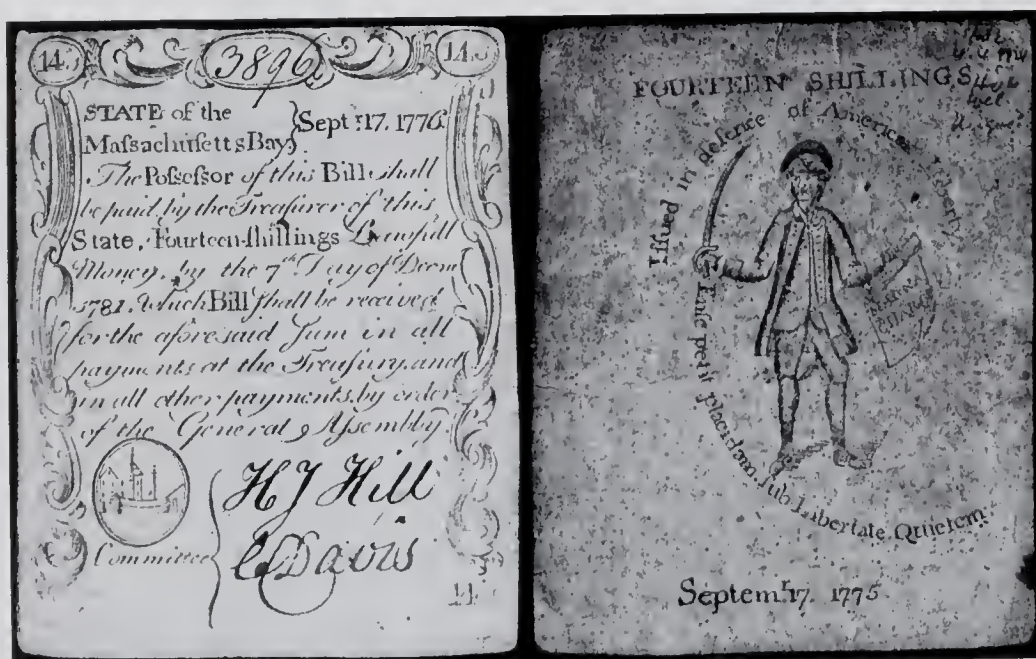 14.s
3896
14.s
STATE of the
Maſsachuſetts Bay
Sept.r 17. 1776.
The Poſseſsor of this Bill ſhall
be paid by the Treaſurer of this
State, Fourteen ſhillings Lawfull
Money, by the 7th Day of Decm
1781. which Bill ſhall be received
for the aforesaid ſum in all
payments at the Treaſury, and
in all other payments, by order
of the General Aſsembly
Committee
HJ Hill
C Davis
14
FOURTEEN SHILLINGS
Iſſued in defence of American Liberty
Enſe petit placidam, ſub Libertate Quietem
MAGNA
CHARTA
Septemr. 17. 1775